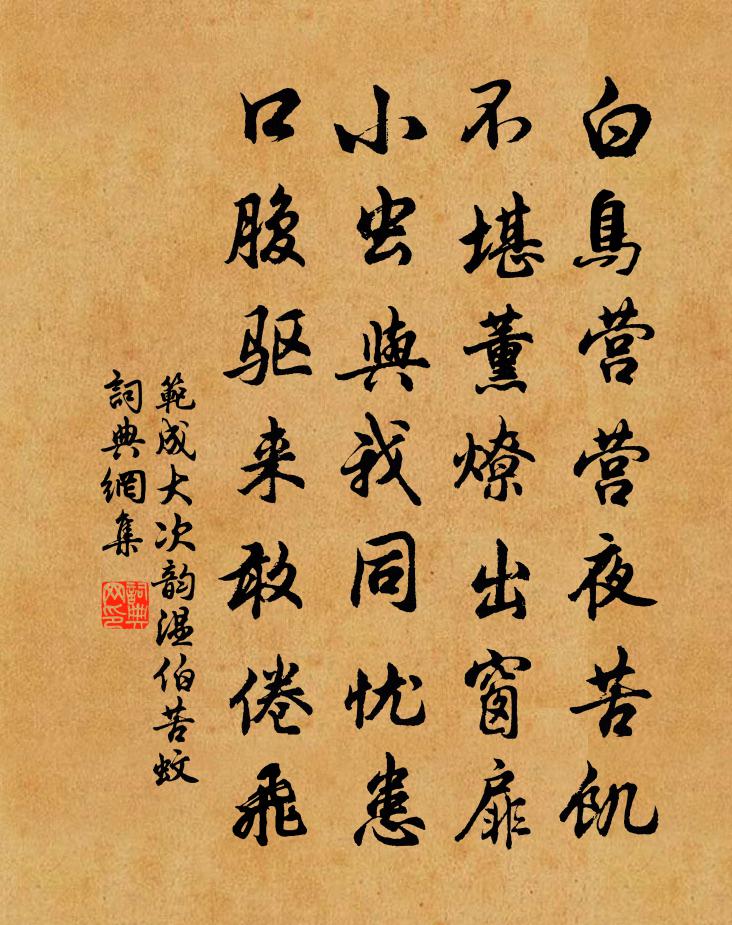 白鳥营营夜苦飢
不堪薰燎出窗扉
小虫與我同忧患
口腹驱来敢倦飛
範成大次韵温伯苦蚊
詞典網集
詞典網印